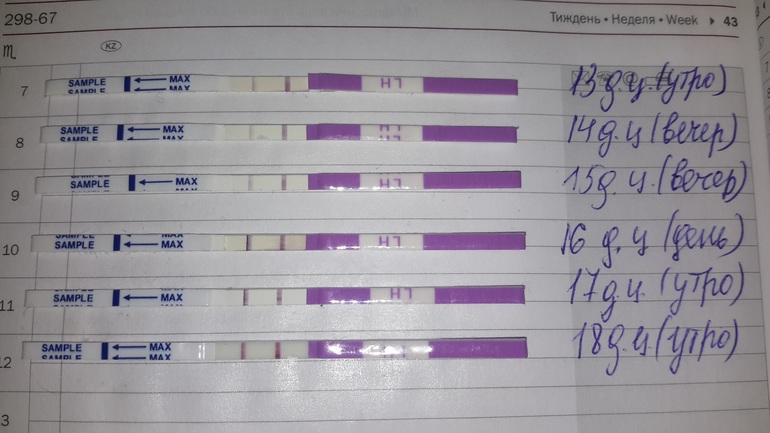 298-67 Тиждень • Неделя • Week 43
KZ
7 SAMPLE MAX LH 13 д.ц. (утро)
8 SAMPLE MAX LH 14 д.ц (вечер)
9 SAMPLE MAX LH 15 д.ц. (вечер)
10 SAMPLE MAX LH 16 д.ц (день)
11 SAMPLE MAX LH 17 д.ц. (утро)
12 SAMPLE MAX LH 18 д.ц (утро)
3